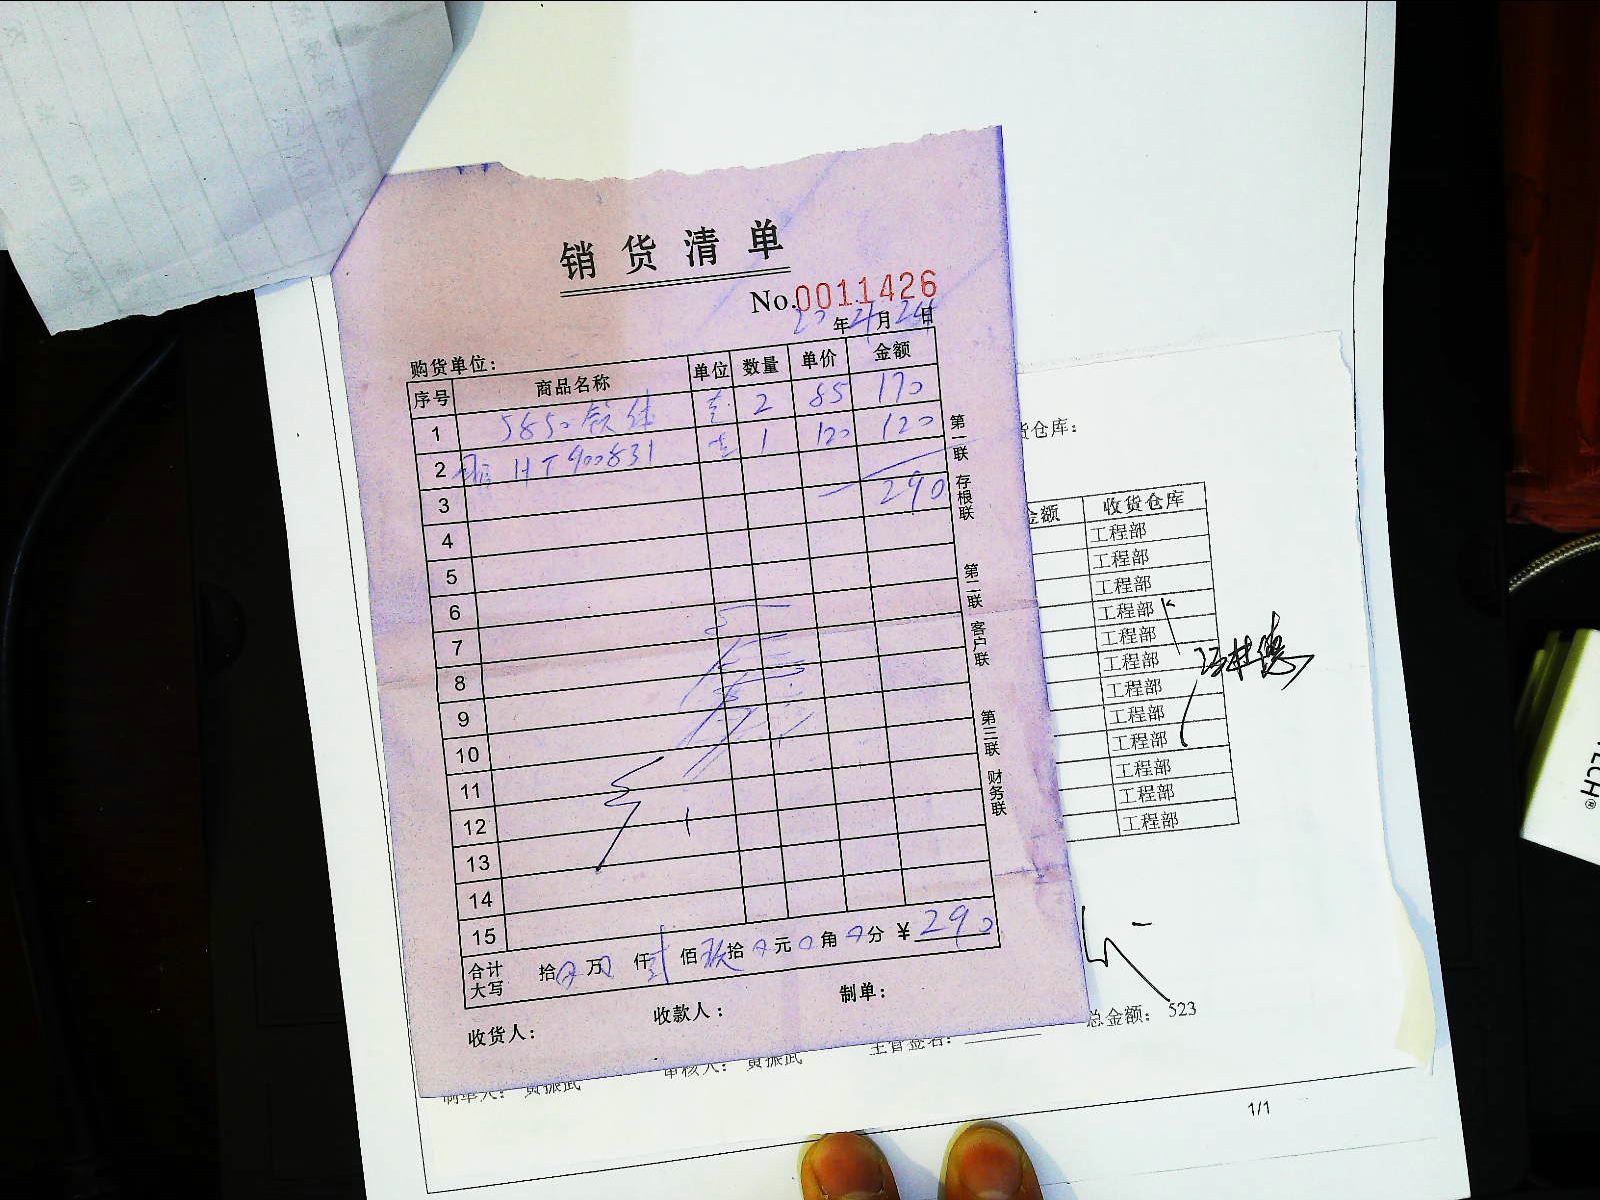 销货清单
No.0011426
20年 月24日
购货单位：
序号 商品名称 单位 数量 单价 金额
1 5850 2 85 170
2 HT900831 1 120 120
3 290
4
5
6
7
8
9
10
11
12
13
14
15
合计大写 拾 万 仟贰佰玖拾0元0角0分 ¥290
收货人： 收款人： 制单：
第一联 存根联
第二联 客户联
第三联 财务联
货仓库：
金额 收货仓库
工程部
工程部
工程部
工程部
工程部
工程部
工程部
工程部
工程部
工程部
工程部
工程部
总金额： 523
制单人： 黄振武 审核人： 黄振武 主管签名：
1/1
TECH®